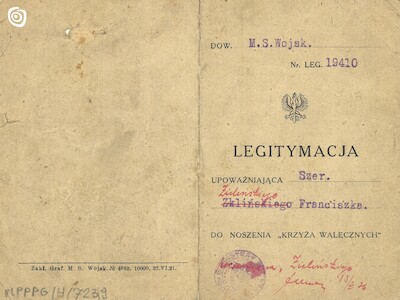 Zakł. Graf. M. S. Wojsk. № 4682. 10000. 22.VI.21.
MPPPG/H/7239
DOW. M.S.Wojsk.
Nr. LEG. 19410
LEGITYMACJA
UPOWAŻNIAJĄCA Szer.
Zielińskiego
Zklińskiego Franciszka.
DO NOSZENIA „KRZYŻA WALECZNYCH”
Zielińskiego